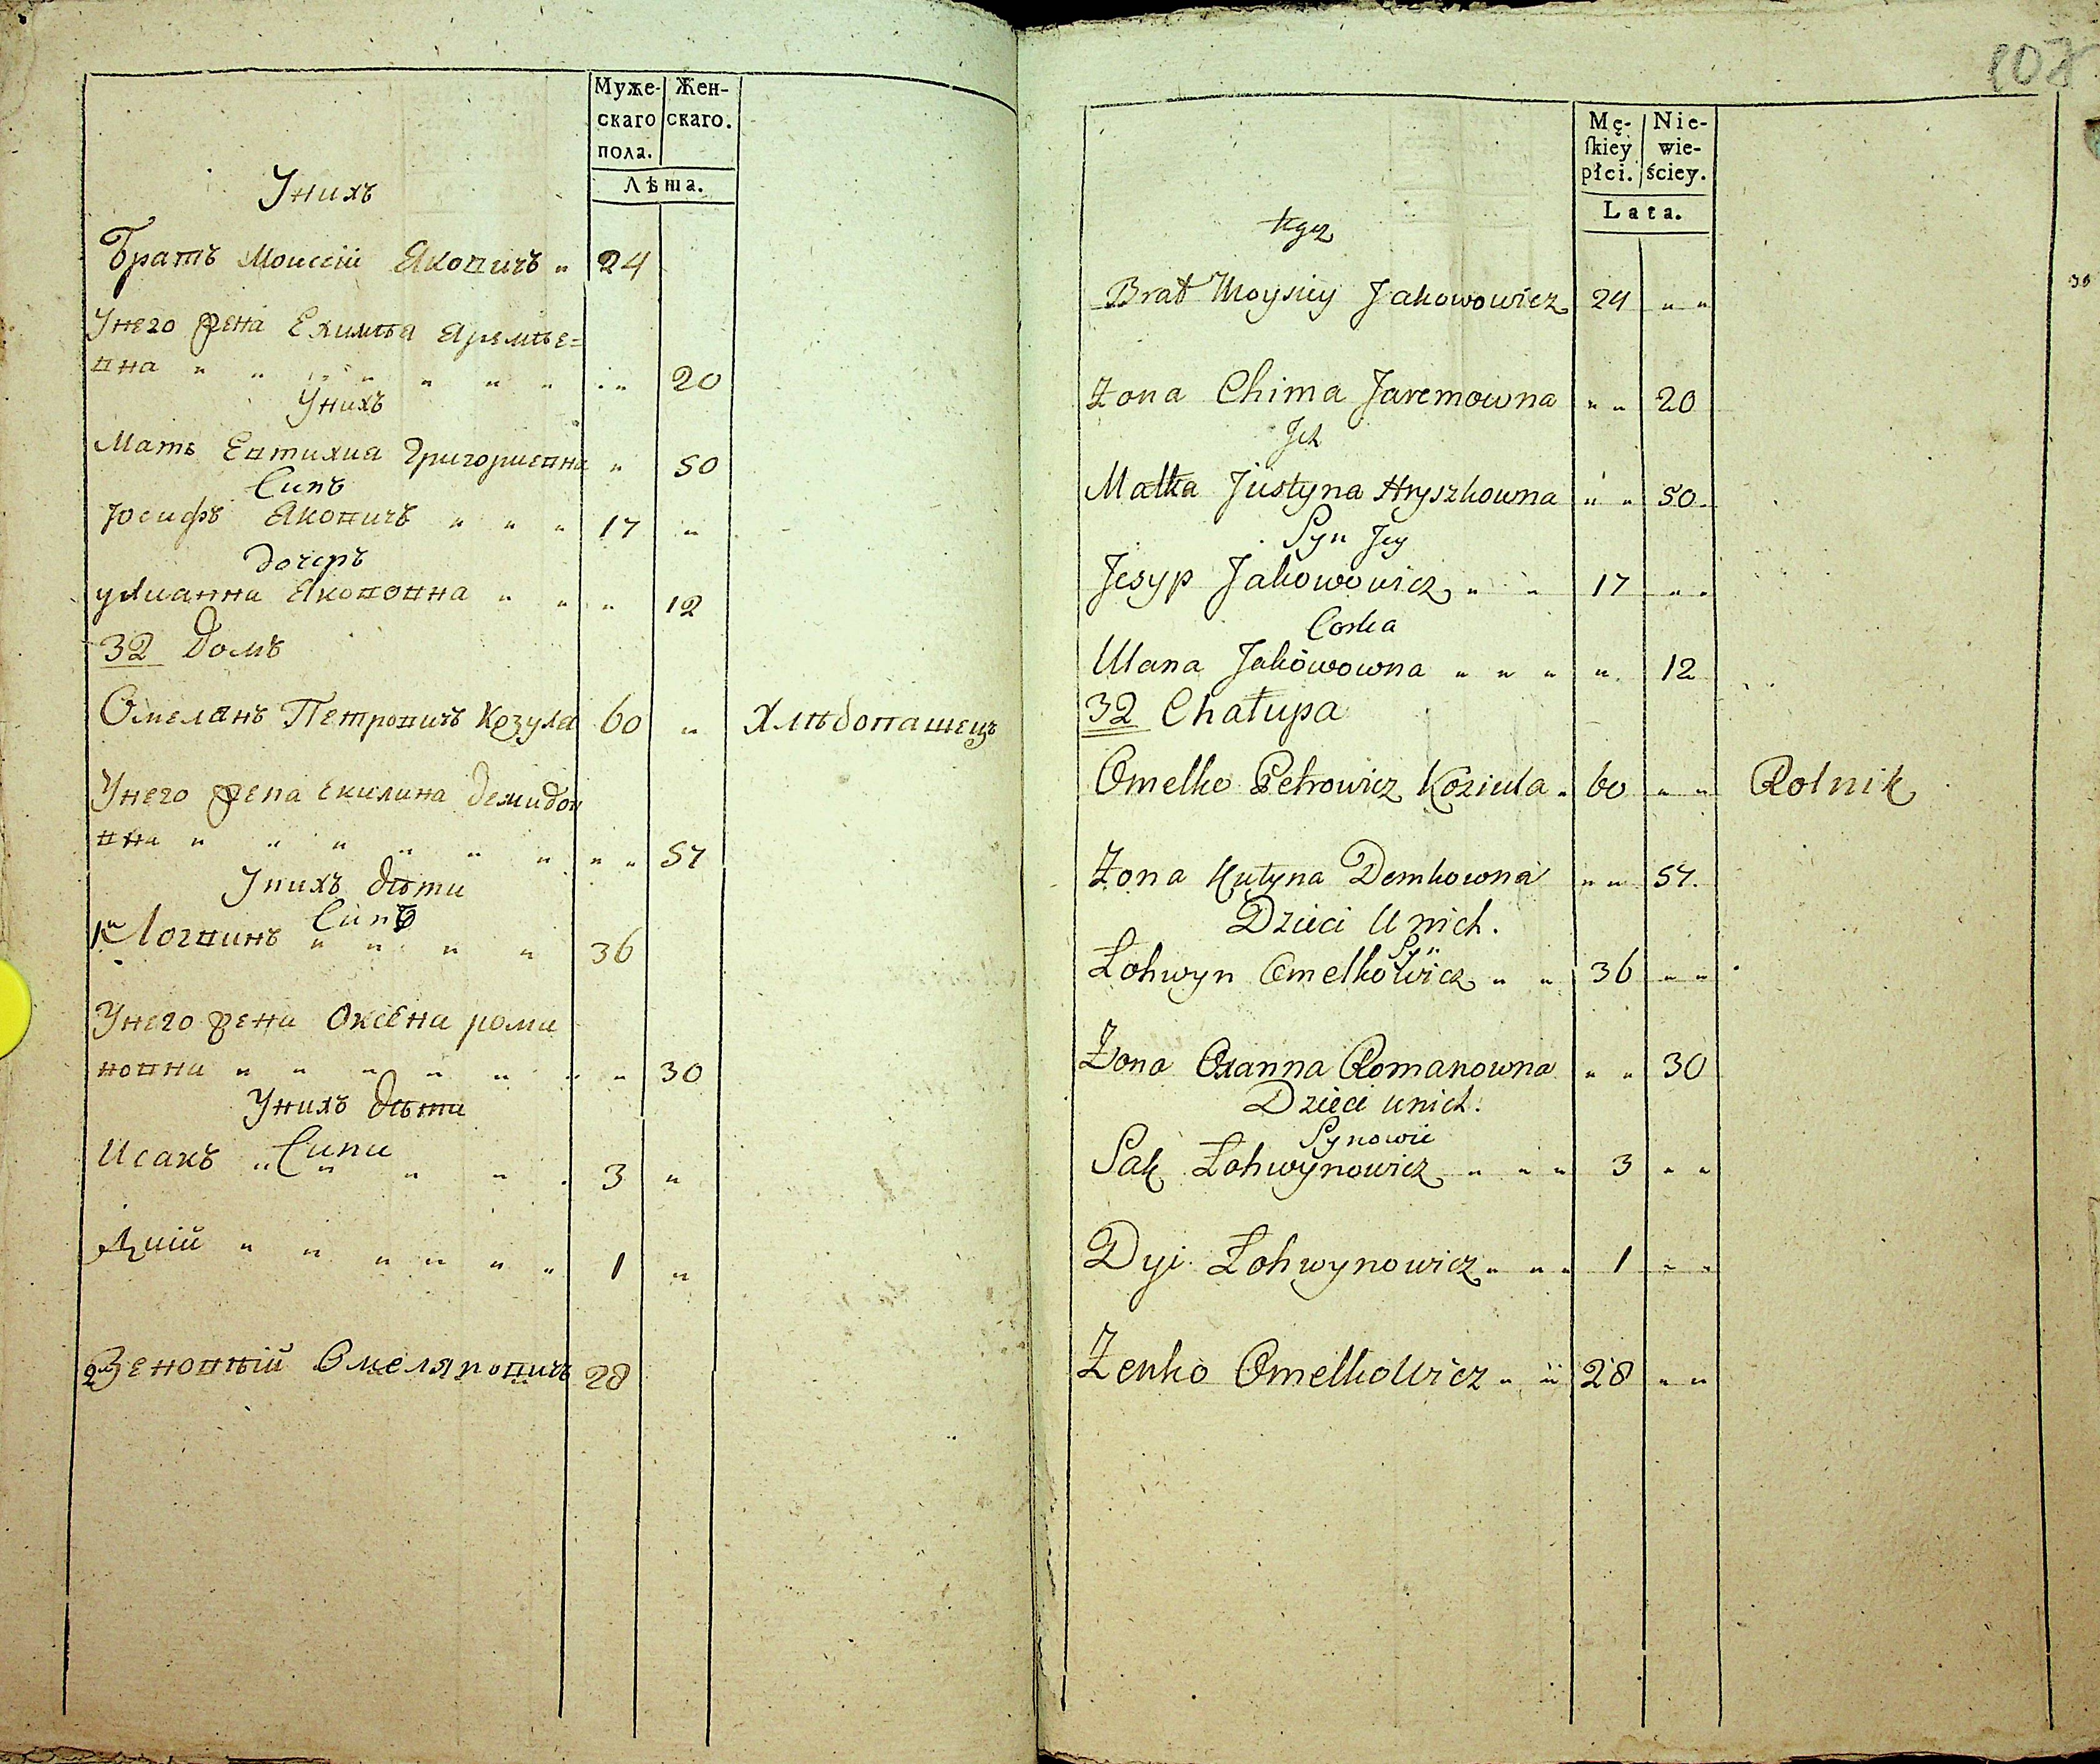 Муже-
скаго
пола.
Жен-
скаго.
Лѣта.
Унихъ
Братъ Моисей Яковичъ 24
Унего жена Ехимья Яремѣе=
вна 20
Унихъ
Мать Евтихиа Григориевна 50
Синъ
Іосифъ Яковичъ 17
дочеръ
улианна Яковона 12
32 Домъ
Омелянъ Петровичъ Козула 60 Хлѣбопашецъ
Унего жена Екилина Демидов
вна 57
Унихъ дѣти
Синъ
1й Логвинъ 36
Унего жена Оксена рома
новна 30
Унихъ дѣти
Сини
Исакъ 3
Дий 1
2 Зеновѣй Омеляновичъ 28
108
Mę-
ſkiey
płci.
Nie-
wie-
ściey.
Lata.
Brat Moysiey Jakowowicz 24
Zona Chima Jaremowna 20
Ich
Matka Justyna Hryszkowna 50
Syn Jey
Jesyp Jakowowicz 17
Corka
Ulana Jakowowna 12
32 Chałupa
Omelko Petrowicz Koziula 60 Rolnik
Zona Kutyna Demkowna 57.
Dzieci U nich.
Syn
Łohwyn Omelkowicz 36
Zona Oxanna Romanowna 30
Dzieci unich.
Synowie
Sak Łohwynowicz 3
Dyi Łohwynowicz 1
Zenko Omelkowicz 28